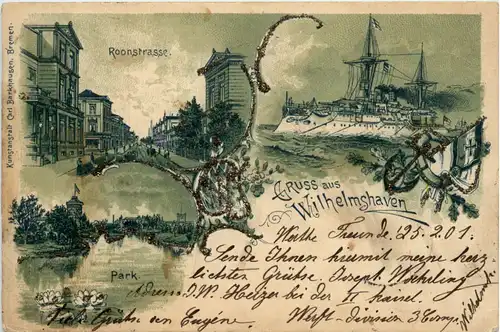 Kunstanstalt Carl Barkhausen, Bremen.
Roonstrasse.
Gruss aus
Wilhelmshaven
Park.
Werthe Freunde. 25.2.01.
Sende Ihnen hiermit meine herz
lichsten Grüsse. Joseph
Adresse J.W. bei der II
Werft-Division 3 Comp.
Viele Grüsse an Eugène.